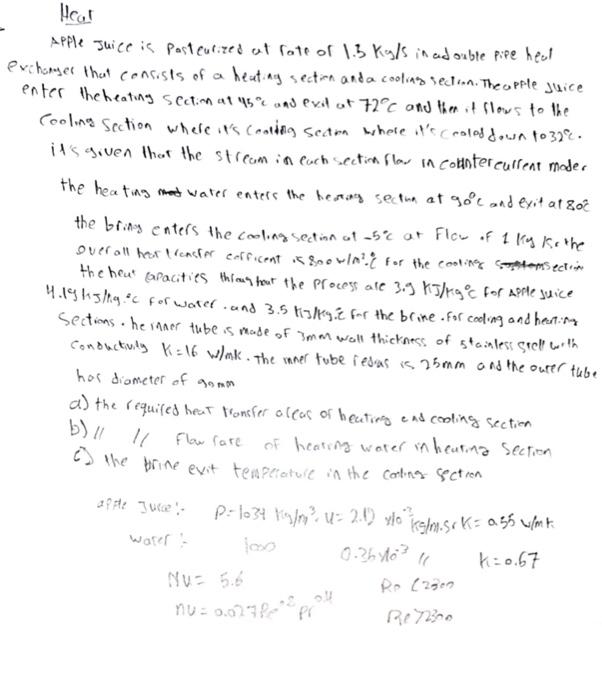 Heat
Apple Juice is Pasteurized at rate of 1.3 Kg/s in a double pipe heat
exchanger that consists of a heating section and a cooling section. The apple Juice
enter the heating section at 45°c and exit at 72°c and then it flows to the
Cooling Section where it's Cooling Secton where it's Cooled down to 32°c.
it's given that the stream in each section flow in countercurrent mode.
the heating water enters the heating section at 90°c and exit at 80c
the brine enters the cooling section at -5°c at Flow of 1 Kg the
overall heat transfer cofficent is 800 w/m².c for the cooling section
the heat Capacities throughout the process are 3.9 KJ/kg°c for Apple juice
4.19 kJ/kg.°c for water. and 3.5 KJ/kg.c for the brine. for cooling and heating
Sections. he inner tube is made of 3mm wall thickness of stainless stell with
Conductivity K=16 w/mk. The inner tube redius is 25mm and the outer tube
has diameter of 90mm
a) the required heat transfer areas of heating and cooling section
b) // // Flow rate of heating water in heating Section
c) the brine exit temperature in the cooling section
apple Juice: P=1034 Kg/m³. u= 2.12 x10⁻³ kg/m.s K= 0.55 w/mk
water: 1000 0.36x10⁻³ // K=0.67
Nu= 5.6 Re<2300
nu= 0.027Re⁰·⁸ Pr⁰·⁴ Re>2300